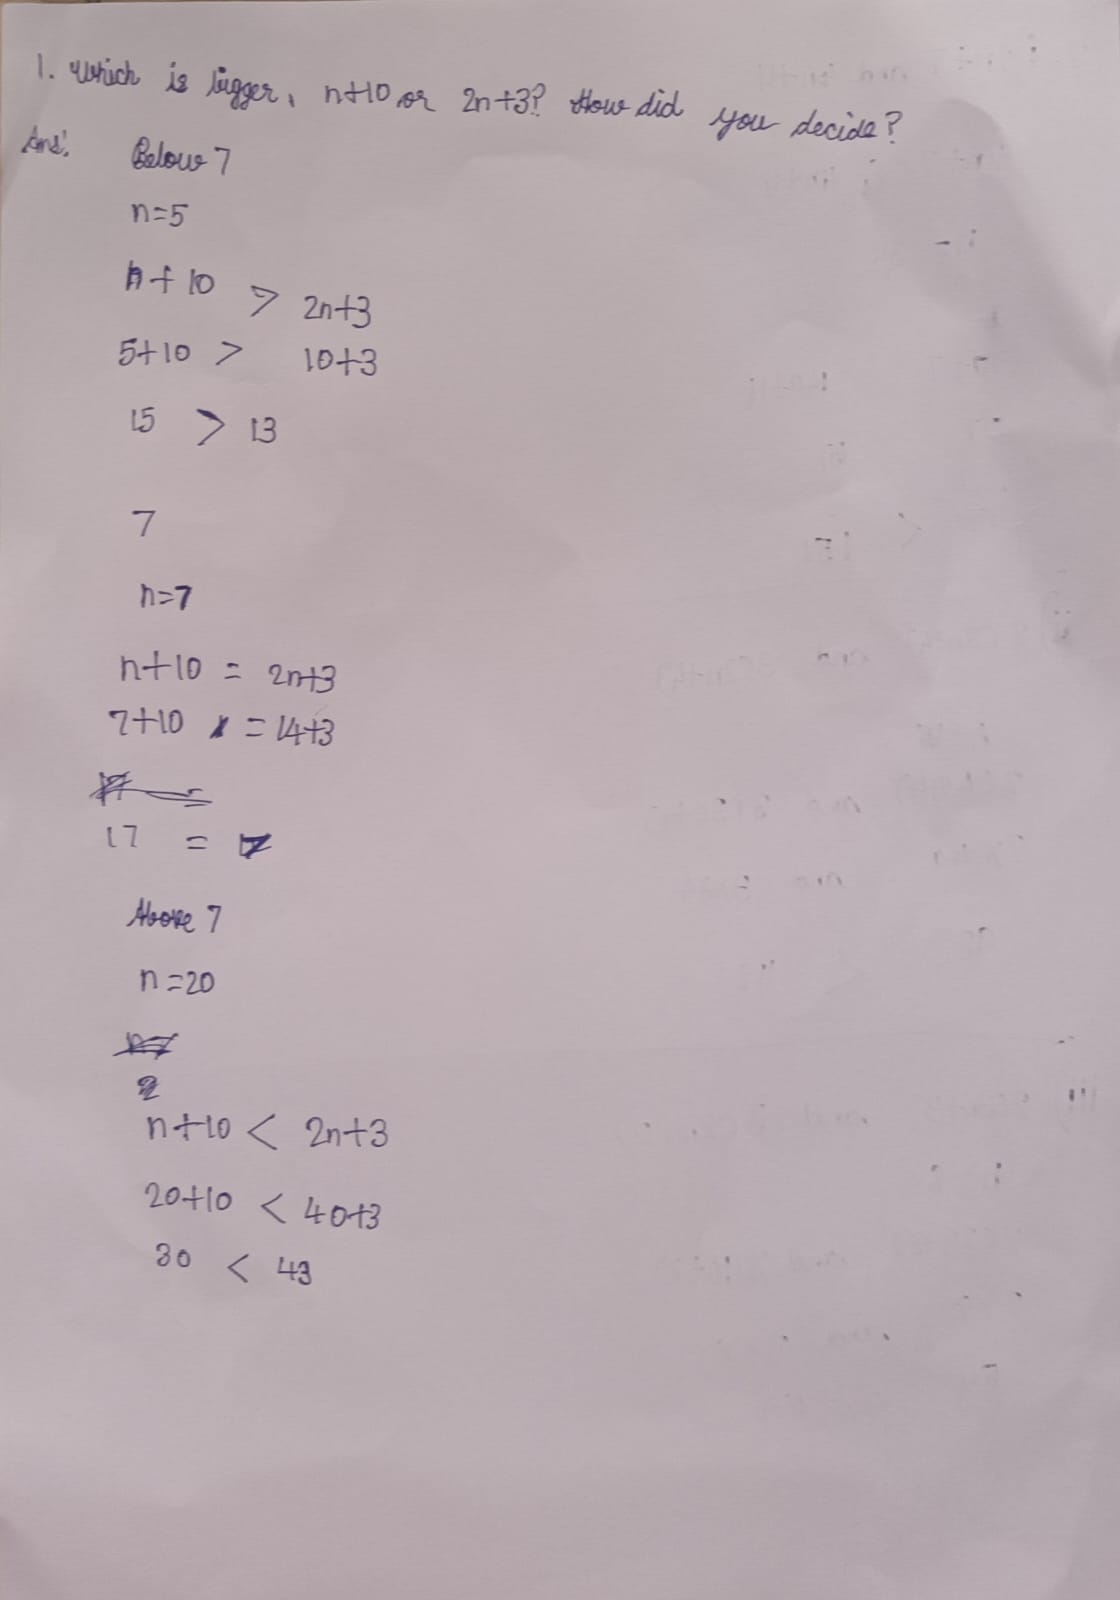 1. Which is bigger, n+10 or 2n+3? How did you decide?
Ans: Below 7
n=5
n+10 > 2n+3
5+10 > 10+3
15 > 13
7
n=7
n+10 = 2n+3
7+10 = 14+3
17 = 17
Above 7
n=20
2
n+10 < 2n+3
20+10 < 40+3
30 < 43